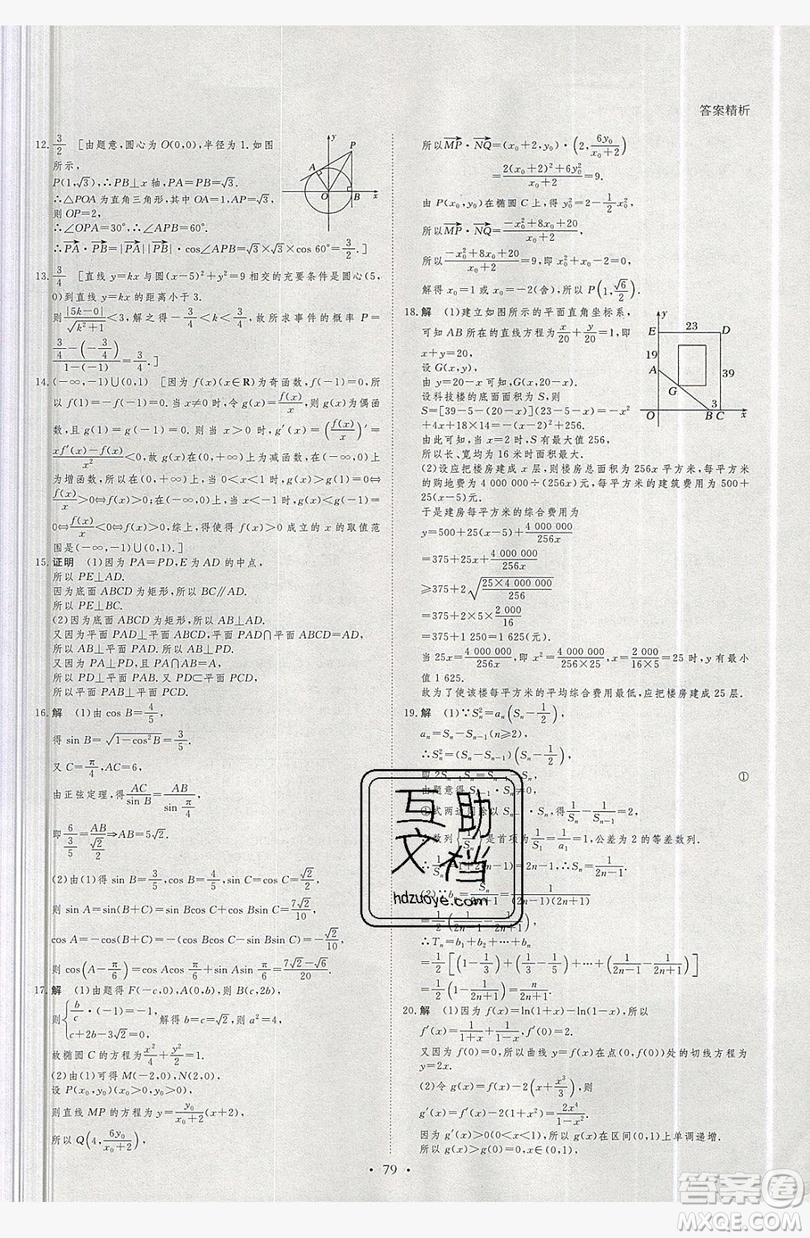 答案精析
12. 3/2 [由题意,圆心为 O(0,0),半径为 1. 如图
所示,
P(1,√3),∴PB⊥x 轴,PA=PB=√3.
∴△POA 为直角三角形,其中 OA=1,AP=√3,
则 OP=2,
∴∠OPA=30°,∴∠APB=60°.
∴PA·PB=|PA||PB|·cos∠APB=√3×√3×cos 60°=3/2.]
13. 3/4 [直线 y=kx 与圆(x-5)²+y²=9 相交的充要条件是圆心(5,
0)到直线 y=kx 的距离小于 3.
则 |5k-0|/√(k²+1)<3,解之得-3/4<k<3/4,故所求事件的概率 P=
(3/4-(-3/4))/(1-(-1))=3/4.]
14. (-∞,-1)∪(0,1) [因为 f(x)(x∈R)为奇函数,f(-1)=0,所
以 f(1)=-f(-1)=0. 当 x≠0 时,令 g(x)=f(x)/x,则 g(x)为偶函
数,且 g(1)=g(-1)=0. 则当 x>0 时,g′(x)=(f(x)/x)′=
(xf′(x)-f(x))/x²<0,故 g(x)在(0,+∞)上为减函数,在(-∞,0)上
为增函数,所以在(0,+∞)上,当 0<x<1 时,g(x)>g(1)=0⇔
f(x)/x>0⇔f(x)>0;在(-∞,0)上,当 x<-1 时,g(x)<g(-1)=
0⇔f(x)/x<0⇔f(x)>0,综上,得使 f(x)>0 成立的 x 的取值范
围是(-∞,-1)∪(0,1).]
15. 证明 (1)因为 PA=PD,E 为 AD 的中点,
所以 PE⊥AD.
因为底面 ABCD 为矩形,所以 BC∥AD.
所以 PE⊥BC.
(2)因为底面 ABCD 为矩形,所以 AB⊥AD.
又因为平面 PAD⊥平面 ABCD,平面 PAD∩平面 ABCD=AD,
所以 AB⊥平面 PAD. 所以 AB⊥PD.
又因为 PA⊥PD,PA∩AB=A,
所以 PD⊥平面 PAB. 又 PD⊂平面 PCD,
所以平面 PAB⊥平面 PCD.
16. 解 (1)由 cos B=4/5,
得 sin B=√(1-cos²B)=3/5.
又 C=π/4,AC=6,
由正弦定理,得 AC/sin B=AB/sin π/4,
即 6/(3/5)=AB/(√2/2)⇒AB=5√2.
(2)由(1)得 sin B=3/5,cos B=4/5,sin C=cos C=√2/2,
则 sin A=sin(B+C)=sin Bcos C+cos Bsin C=7√2/10,
cos A=-cos(B+C)=-(cos Bcos C-sin Bsin C)=-√2/10,
则 cos(A-π/6)=cos Acos π/6+sin Asin π/6=(7√2-√6)/20.
17. 解 (1)由题得 F(-c,0),A(0,b),B(c,2b),
则{b/c·(-1)=-1,
c+2b-3√2=0, 解得 b=c=√2,则 a²=4,
故椭圆 C 的方程为 x²/4+y²/2=1.
(2)由(1)可得 M(-2,0),N(2,0).
设 P(x₀,y₀),
则直线 MP 的方程为 y=y₀/(x₀+2)(x+2),
所以 Q(4,6y₀/(x₀+2)),
所以MP·NQ=(x₀+2,y₀)·(2,6y₀/(x₀+2))
=(2(x₀+2)²+6y₀²)/(x₀+2)=9.
由 P(x₀,y₀)在椭圆 C 上,得 y₀²=2-1/2x₀²,
所以MP·NQ=(-x₀²+8x₀+20)/(x₀+2),
则MP·NQ=(-x₀²+8x₀+20)/(x₀+2)=9,
解得 x₀=1 或 x₀=-2(舍),所以 P(1,√6/2).
18. 解 (1)建立如图所示的平面直角坐标系,
可知 AB 所在的直线方程为 x/20+y/20=1,即
x+y=20,
设 G(x,y),由 y=20-x 可知 G(x,20-x).
设科技楼的底面面积为 S,则
S=[39-5-(20-x)][23-5-x]=-x²
+4x+18×14=-(x-2)²+256.
由此可知,当 x=2 时,S 有最大值 256,
所以长、宽均为 16 米时面积最大,最大面积为 256 平方米.
(2)设应把楼房建成 x 层,则楼房总面积为 256x 平方米,每平方米
的购地费为 4 000 000÷(256x)元,每平方米的建筑费用为 500+
500×(x-5)×5%元,
于是建房每平方米的综合费用为
y=500+25(x-5)+4 000 000/256x
=375+25x+4 000 000/256x
≥375+2√(25×4 000 000/256)
=375+2×5×2 000/16
=375+1 250=1 625(元).
当 25x=4 000 000/256x,即 x²=400²/256,x=2 000/(16×5)=25 时,y 有最小值
1 625.
故为了使该楼每平方米的平均综合费用最低,应把楼房建成 25 层.
19. 解 (1)∵Sₙ²=aₙ(Sₙ-1/2),
aₙ=Sₙ-Sₙ₋₁(n≥2),
∴Sₙ²=(Sₙ-Sₙ₋₁)(Sₙ-1/2),
①
∴数列{1/Sₙ}是首项为1/S₁=1/a₁=1,公差为 2 的等差数列.
=1/2(1/(2n-1)-1/(2n+1)),
∴Tₙ=b₁+b₂+…+bₙ
=1/2[(1-1/3)+(1/3-1/5)+…+(1/(2n-1)-1/(2n+1))]
=1/2(1-1/(2n+1))=n/(2n+1).
20. 解 (1)因为 f(x)=ln(1+x)-ln(1-x),所以
f′(x)=1/(1+x)+1/(1-x),f′(0)=2.
又因为 f(0)=0,所以曲线 y=f(x)在点(0,f(0))处的切线方程为
y=2x.
(2)令 g(x)=f(x)-2(x+x³/3),则
g′(x)=f′(x)-2(1+x²)=2x⁴/(1-x²).
因为 g′(x)>0(0<x<1),所以 g(x)在区间(0,1)上单调递增.
所以 g(x)>g(0)=0,x∈(0,1),
y
P
A
O
B
x
y
E
23
D
19
A
39
G
3
O
B
C
x
互助
文档
hdzuoye.com
• 79 •
答案圈
MXQE.COM